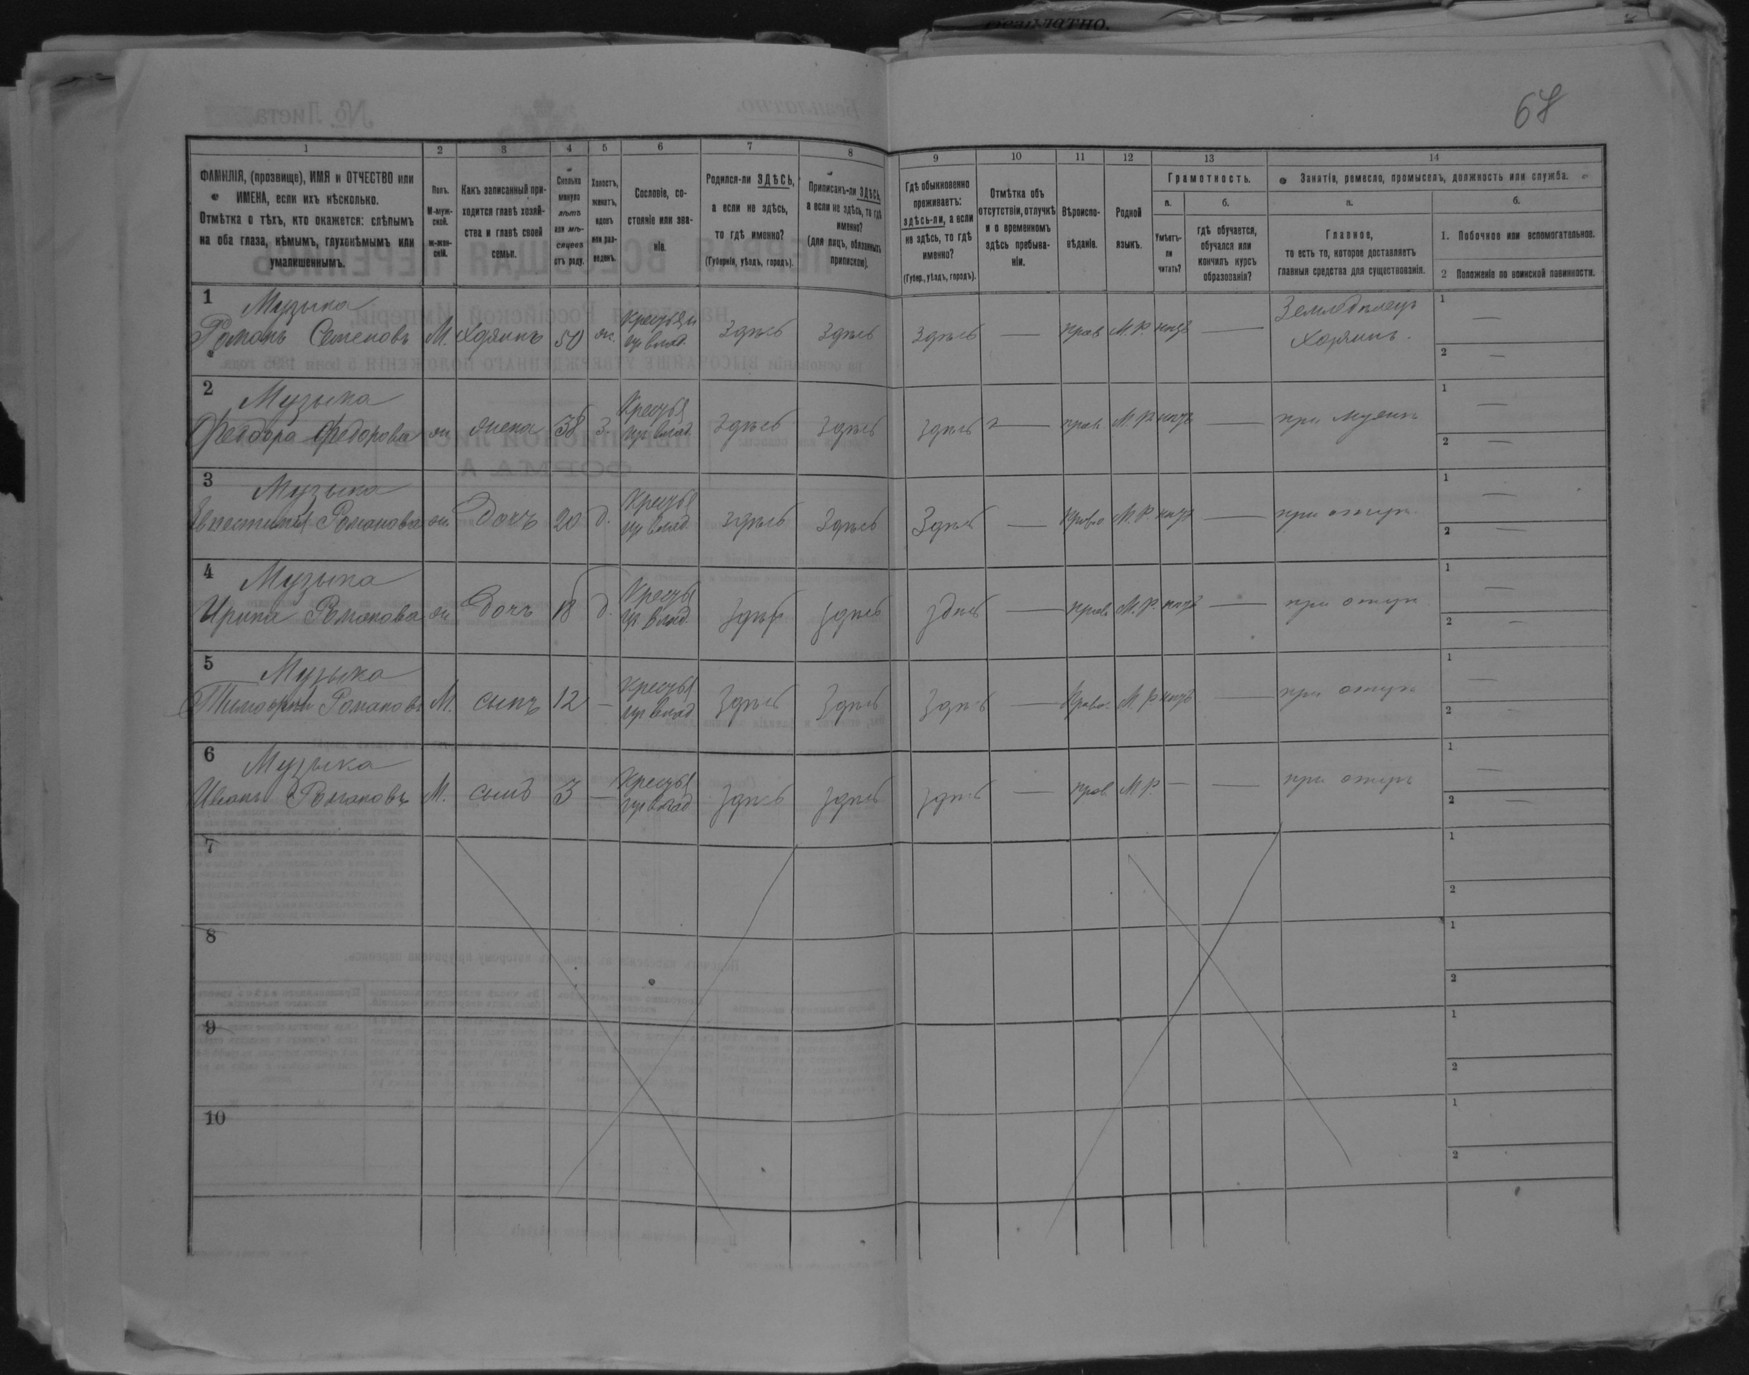 Безплатно.
68
1 2 3 4 5 6 7 8 9 10 11 12 13 14
ФАМИЛІЯ, (прозвище), ИМЯ и ОТЧЕСТВО или
ИМЕНА, если ихъ нѣсколько.
Отмѣтка о тѣхъ, кто окажется: слѣпымъ
на оба глаза, нѣмымъ, глухонѣмымъ или
умалишеннымъ.
Полъ.
М-муж-
ской.
ж-жен-
скій.
Какъ записанный при-
ходится главѣ хозяй-
ства и главѣ своей
семьи.
Сколько
минуло
лѣтъ
или мѣ-
сяцевъ
отъ роду.
Холостъ,
женатъ,
вдовъ
или раз-
веденъ.
Сословіе, со-
стояніе или зва-
ніе.
Родился-ли ЗДѢСЬ,
а если не здѣсь,
то гдѣ именно?
(Губернія, уѣздъ, городъ).
Приписанъ-ли ЗДѢСЬ,
а если не здѣсь, то гдѣ
именно?
(для лицъ, обязанныхъ
припискою).
Гдѣ обыкновенно
проживаетъ:
здѣсь-ли, а если
не здѣсь, то гдѣ
именно?
(Губер., уѣздъ, городъ).
Отмѣтка объ
отсутствіи, отлучкѣ
и о временномъ
здѣсь пребыва-
ніи.
Вѣроиспо-
вѣданіе.
Родной
языкъ.
Грамотность.
а.
Умѣетъ-
ли
читать?
б.
Гдѣ обучается,
обучался или
кончилъ курсъ
образованія?
Занятія, ремесло, промыселъ, должность или служба.
а.
Главное,
то есть то, которое доставляетъ
главныя средства для существованія.
б.
1. Побочное или вспомогательное.
2 Положеніе по воинской повинности.
1 Музыка Крестьян Земледѣлецъ 1 —
Романъ Семеновъ М. Хозяинъ 50 ж. Здѣсь Здѣсь Здѣсь — прав М.Р. — Хозяинъ. 2 —
2 Музыка 1 —
Феодора Федорова ж жена 38 З. Здѣсь Здѣсь Здѣсь — прав М.Р. — при мужѣ 2 —
3 Музыка 1 —
Романова ж. Дочь 20 д. Здѣсь Здѣсь Здѣсь — Право М.Р. — при отцѣ 2 —
4 Музыка 1 —
Ирина Романова ж Дочь 18 д. Здѣсь Здѣсь Здѣсь — прав М.Р. — при отцѣ 2 —
5 Музыка 1 —
Тимофей Романовъ М. сынъ 12 — Здѣсь Здѣсь Здѣсь — Право. М.Р. — при отцѣ 2 —
6 Музыка 1 —
Иванъ Романовъ М. сынъ 3 — Здѣсь Здѣсь Здѣсь — прав М.Р. — — при отцѣ 2 —
7 1
2
8 1
2
9 1
2
10 1
2